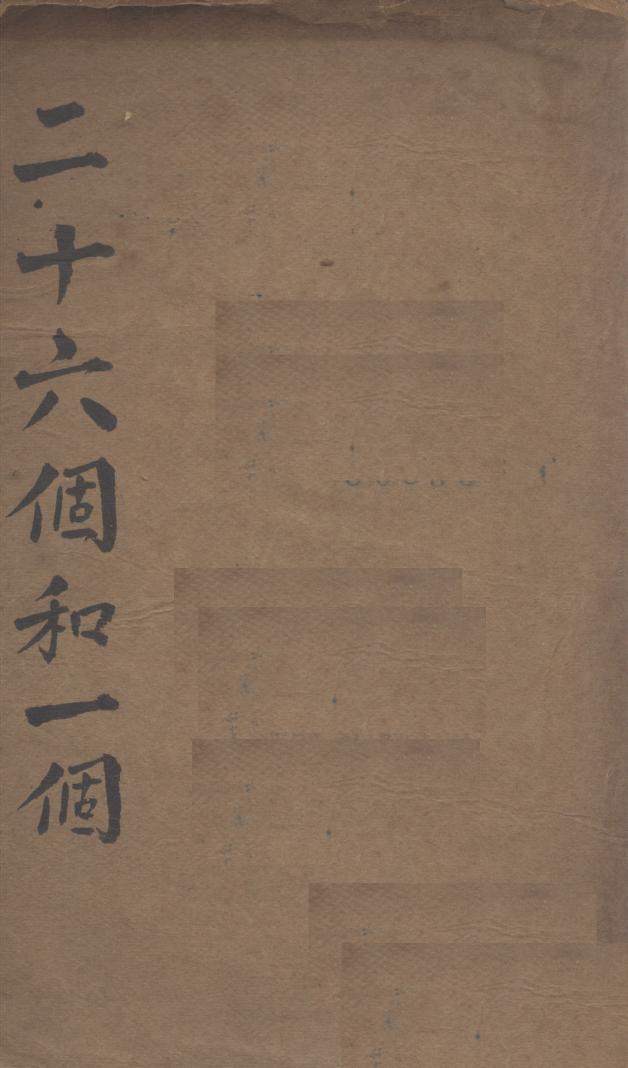 二十六個和一個